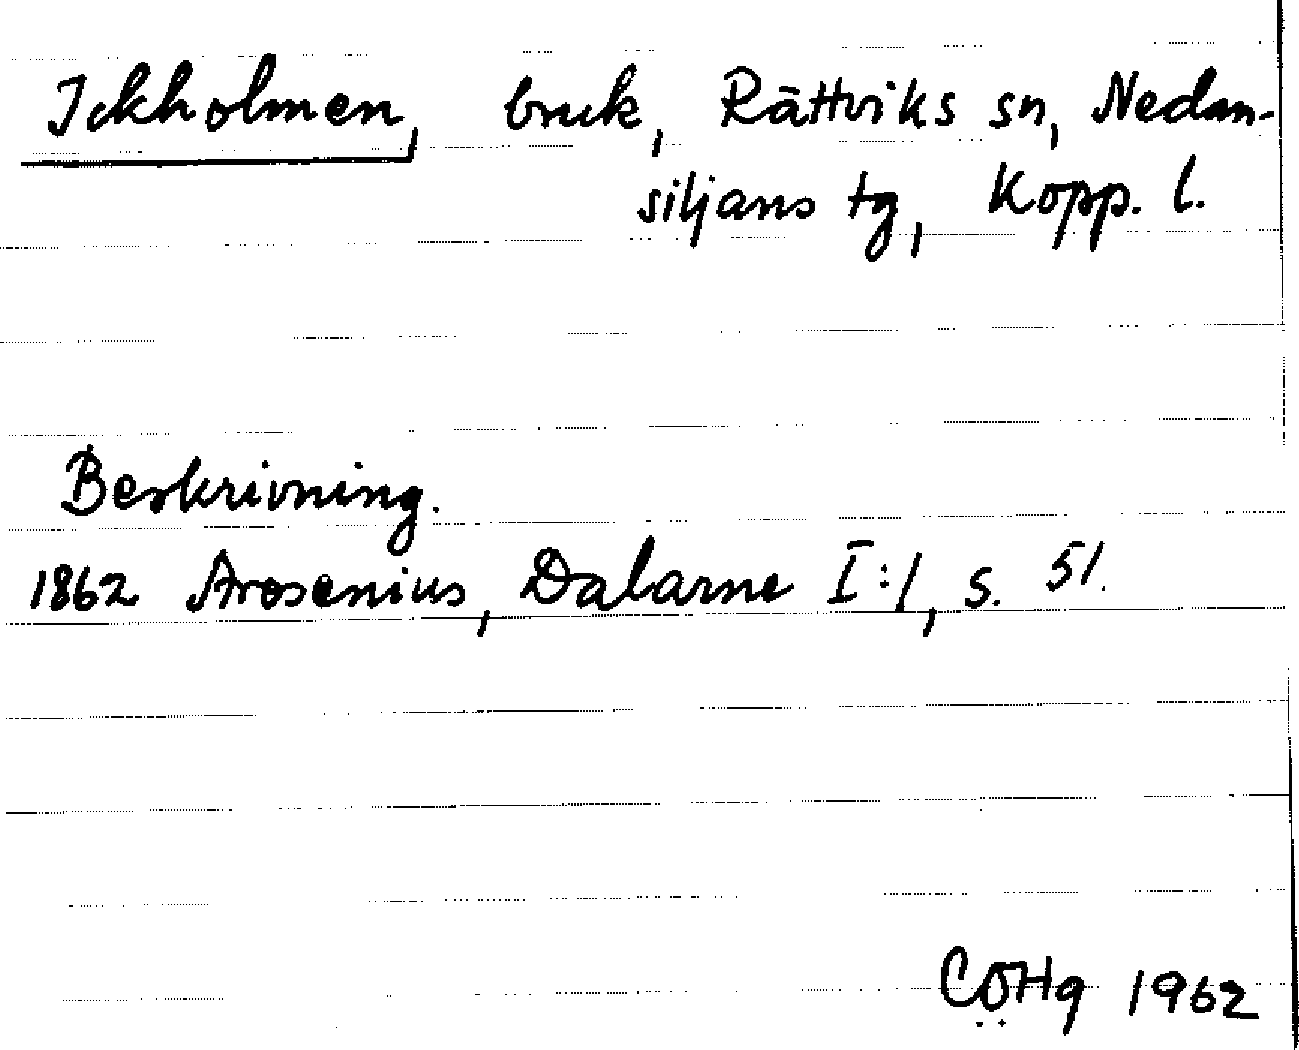 Ickholmen, bruk, Rättviks sn, Nedan-
siljans tg, Kopp. l.
Beskrivning.
1862 Arosenius, Dalarne I:1, s. 51.
CÖHg 1962